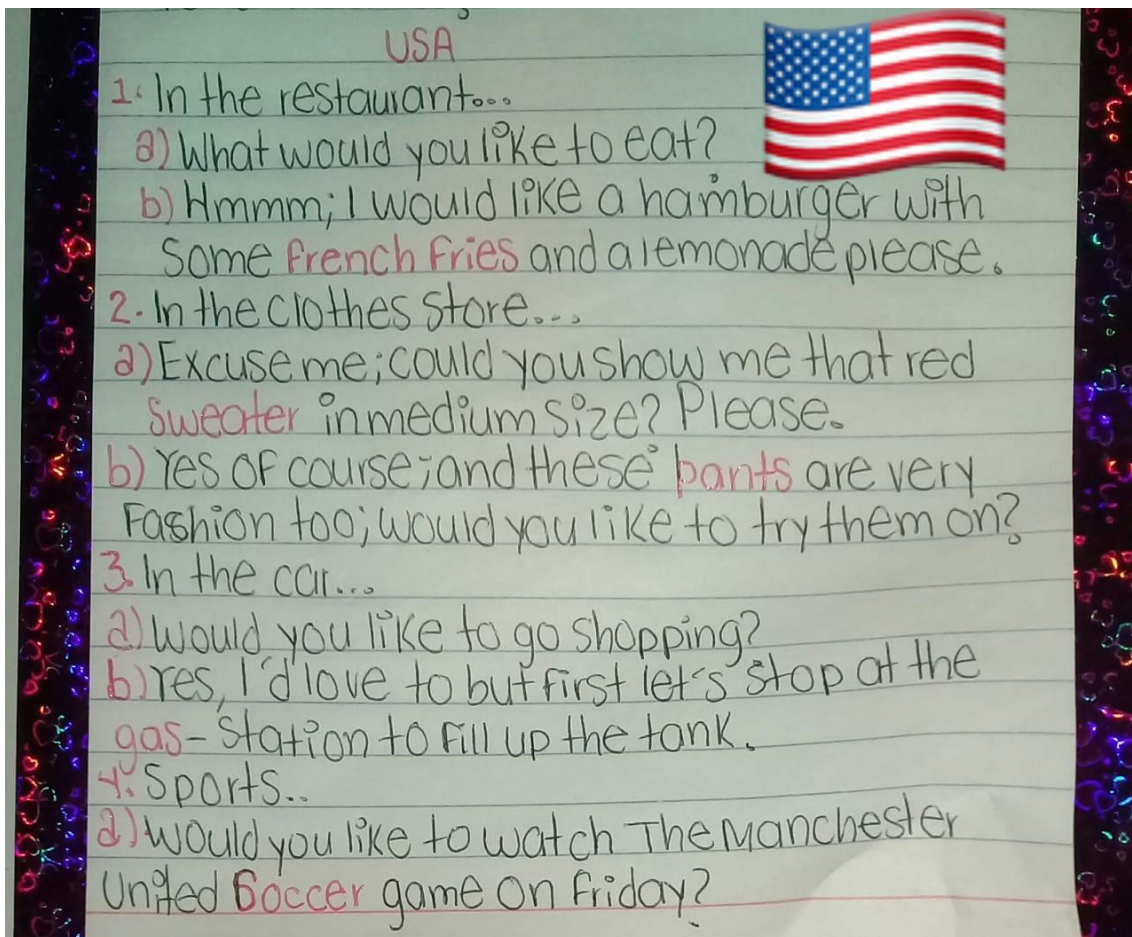 USA
1. In the restaurant...
a) What would you like to eat?
b) Hmmm; I would like a hamburger with
some french fries and a lemonade please.
2. In the clothes store...
a) Excuse me; could you show me that red
sweater in medium size? Please.
b) Yes of course; and these pants are very
Fashion too; would you like to try them on?
3. In the car...
a) Would you like to go shopping?
b) Yes, I'd love to but first let's stop at the
gas-station to fill up the tank.
4. Sports..
a) Would you like to watch The Manchester
United Soccer game on Friday?